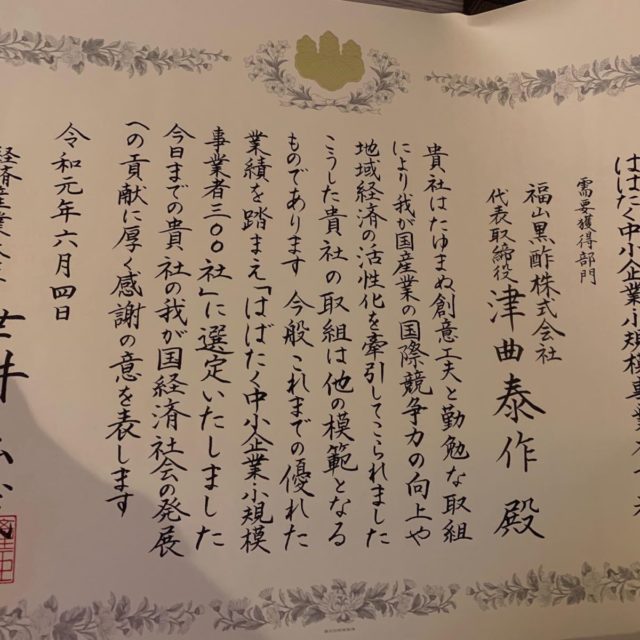 はばたく中小企業小規模事業者
需要獲得部門
福山黒酢株式会社
代表取締役 津曲泰作 殿
貴社はたゆまぬ創意工夫と勤勉な取組
により我が国産業の国際競争力の向上や
地域経済の活性化を牽引してこられました
こうした貴社の取組は他の模範となる
ものであります 今般これまでの優れた
業績を踏まえ「はばたく中小企業小規模
事業者三〇〇社」に選定いたしました
今日までの貴社の我が国経済社会の発展
への貢献に厚く感謝の意を表します
令和元年六月四日
経済産業大臣 世耕